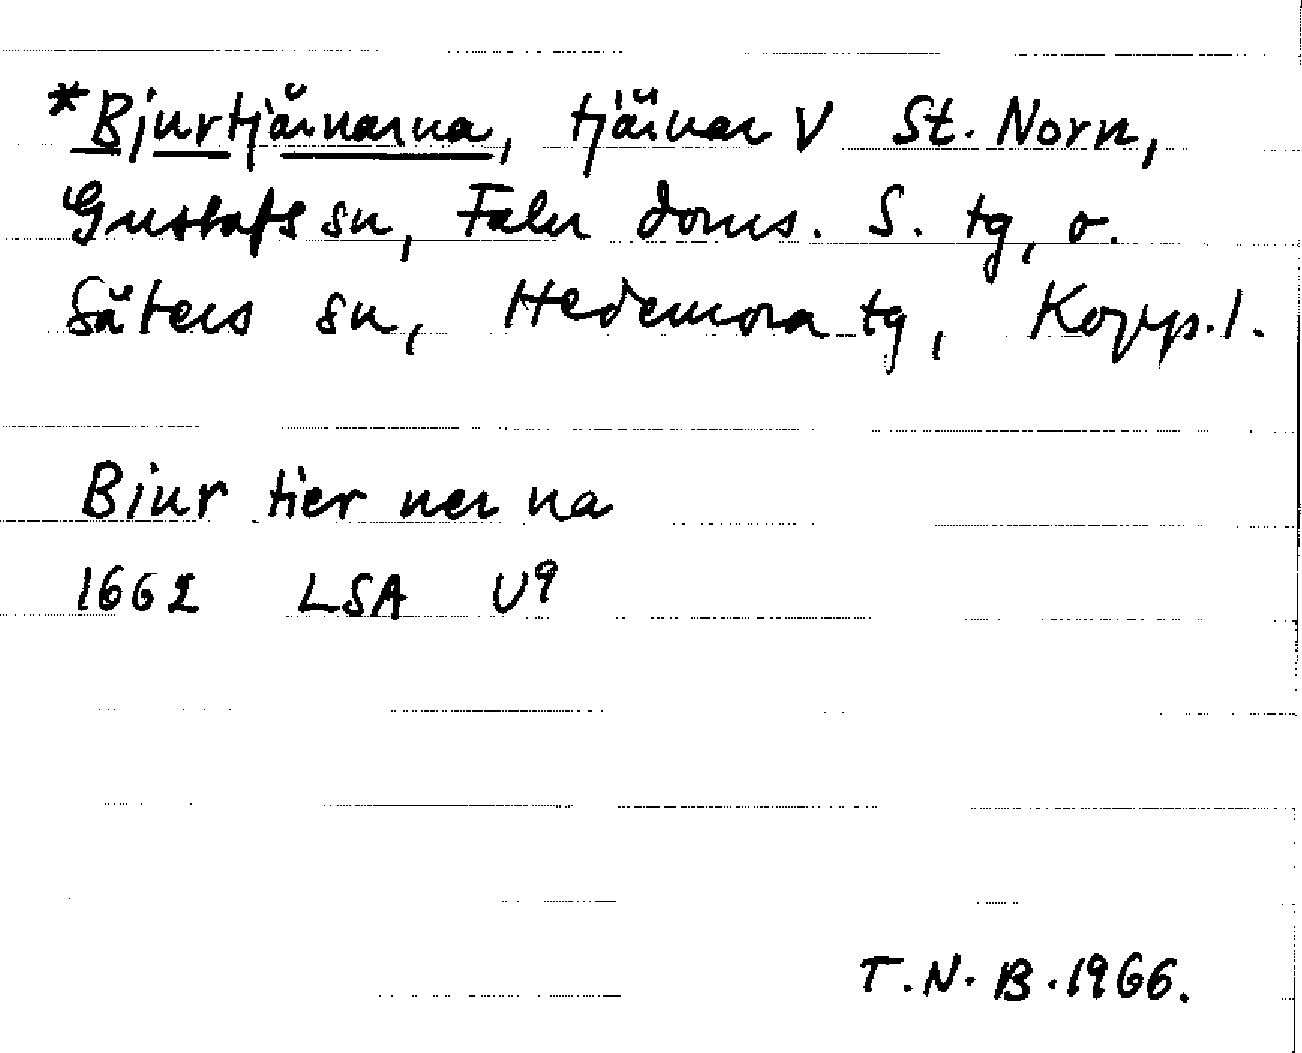 *Bjurtjärnarna, tjärnar V St. Norn,
Gustafs sn, Falu doms. S. tg, o.
Säters sn, Hedemora tg, Kopp.l.
Biur tier ner na
1662 LSA U9
T.N.B.1966.